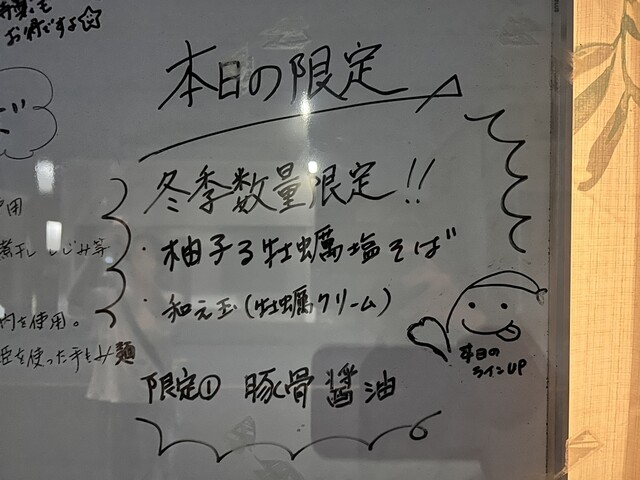 お得です☆
本日の限定
冬季数量限定!!
・柚子る牡蠣塩そば
・和え玉(牡蠣クリーム)
限定① 豚骨醤油
本日の
ラインUP
煮干し しじみ等
を使用。
を使った手もみ麺